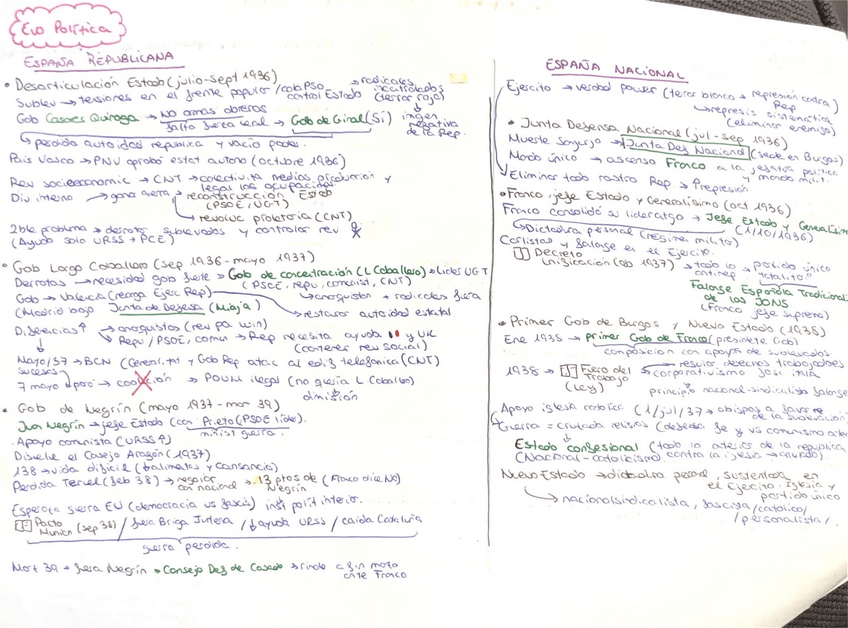 Evo Política
ESPAÑA REPUBLICANA
• Desarticulación Estado (julio-sept 1936)
Sublev → tensiones en el frente popular / control Estado → radicales incontrolados (terror rojo)
Gob Casares Quiroga → No armas obreros → Gob de Giral (Sí)
perdida autoridad republica y vacío poder.
País Vasco → PNV aprobó estat autono (octubre 1936)
Rev socioeconomic → CNT → colectiviza medios producción y
legal las ocupacións
Div interna → gana guerra → reconstrucción Estado
(PSOE, UGT)
revoluc proletaria (CNT)
2ble problema → derrotar sublevados y controlar rev
(Ayuda solo URSS + PCE)
• Gob Largo Caballero (sep 1936 - mayo 1937)
Derrotas → necesidad gob fuerte → Gob de concentración (L Caballero) → lider UGT
(PSOE, repu, comunist, CNT)
Gob → Valencia (reorga Ejer Rep) → anarquistas + radicales fuera
(Madrid bajo Junta de Defensa (Miaja) → restaurar autoridad estatal
Diferencias ↑ → anarquistas (rev pa win)
Repu / PSOE, comun → Rep necesita ayuda y UK
(contener rev social)
Mayo/37 → BCN (General.tat y Gob Rep atac al edif telefonica (CNT)
sucesos
7 mayo paró → coalición → POUM ilegal (no quería L Caballero)
dimisión
• Gob de Negrín (mayo 1937 - mar 39)
Juan Negrín → jefe Estado (con Prieto (PSOE líder).
minist guerra.
. Apoyo comunista (URSS ↑)
Disuelve el Consejo Aragón (1937)
138 → vida dificil (alimentos y cansancio)
Perdida Teruel (feb 38) → negociar con nacional → 13 ptos de Negrín (Franco dice No)
Espera guerra EU (democracia vs fascis) inst polit interior.
Pacto Munich (sep 38) / fuera Briga Intern / ↓ ayuda URSS / caída Cataluña
guerra perdida.
Mar 39 → fuera Negrín → Consejo Def de Casado → rinde a fin marzo
ante Franco
ESPAÑA NACIONAL
Ejercito → verdad power (terror blanco → represión contra Rep
→ represis sistemática
(eliminar enemigo)
• Junta Defensa Nacional (jul-sep 1936)
Muerte Sanjurjo → Junta Def Nacional (sede en Burgos)
Mando único → ascenso Franco a la jefatura política
y mando milit.
Eliminar todo rastro Rep → ↑ represión
• Franco jefe Estado y Generalísimo (oct 1936)
Franco consolidó su liderazgo → Jefe Estado y Generalísimo
(1/10/1936)
→ Dictadura personal (régimen milita)
Carlistas y falange en el Ejercito.
Decreto
Unificación (ab 1937) → todo lo antirep → partido único
"totalit."
Falange Española Tradicional
de las JONS
(Franco jefe supremo)
• Primer Gob de Burgos y Nuevo Estado (1938)
Ene 1938 → Primer Gob de Franco (presidente Gob)
composición con apoyo de sublevados
1938 → Fuero del Trabajo (Ley) → regular derechos trabajadores
corporativismo fasci italia
principio nacional-sindicalista falange
Apoyo iglesia catolica (1/jul/37 → obispos a favor
de la sublevación
Guerra = cruzada religios (defensa fe y vs comunismo ateo
Estado confesional (todo lo anterior de la republica
(Nacional-catolicismo) contra la iglesia → anulado)
Nuevo Estado → dictadura personal, sustentada en
el Ejercito. Iglesia y
partido único
→ nacionalsindicalista, fascista/católico/
/personalista/.